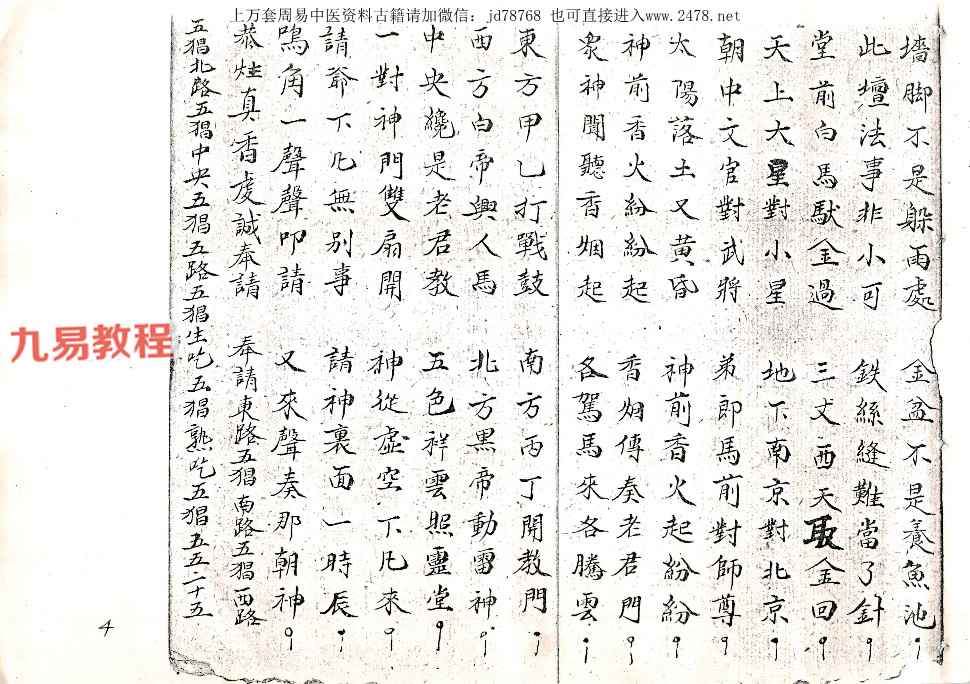 上万套周易中医资料古籍请加微信：jd78768 也可直接进入www.2478.net
墻脚不是躲雨處 金盆不是養魚池
此壇法事非小可 鉄絲縫難當了針
堂前白馬馱金過 三丈西天取金回
天上大星對小星 地下南京對北京
朝中文官對武將 弟郎馬前對師尊
太陽落土又黃昏 神前香火起紛紛
神前香火紛紛起 香烟傳奏老君門
衆神聞聽香烟起 各駕馬來各騰雲
東方甲乙打戰鼓 南方丙丁開教門
西方白帝興人馬 北方黑帝動雷神
中央纔是老君教 五色祥雲照靈堂
一對神門雙扇開 神從虛空下凡來
請爺下凡無別事 請神裏面一時辰
鳴角一聲聲叩請 又來聲奏那朝神
恭炷真香虔誠奉請 奉請東路五猖南路五猖西路
五猖北路五猖中央五猖五路五猖生吃五猖熟吃五猖五五二十五
九易教程
4